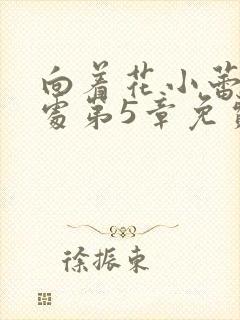 向着花小蕾
处第5章免费
徐振东